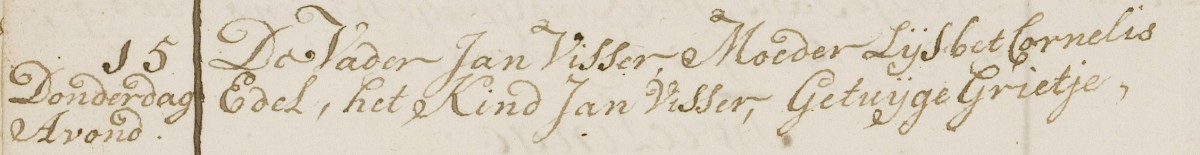 15
Donderdag
Avond.
De Vader Jan Visser, Moeder Lijsbet Cornelis
Edel, het Kind Jan Visser, Getuijge Grietje,